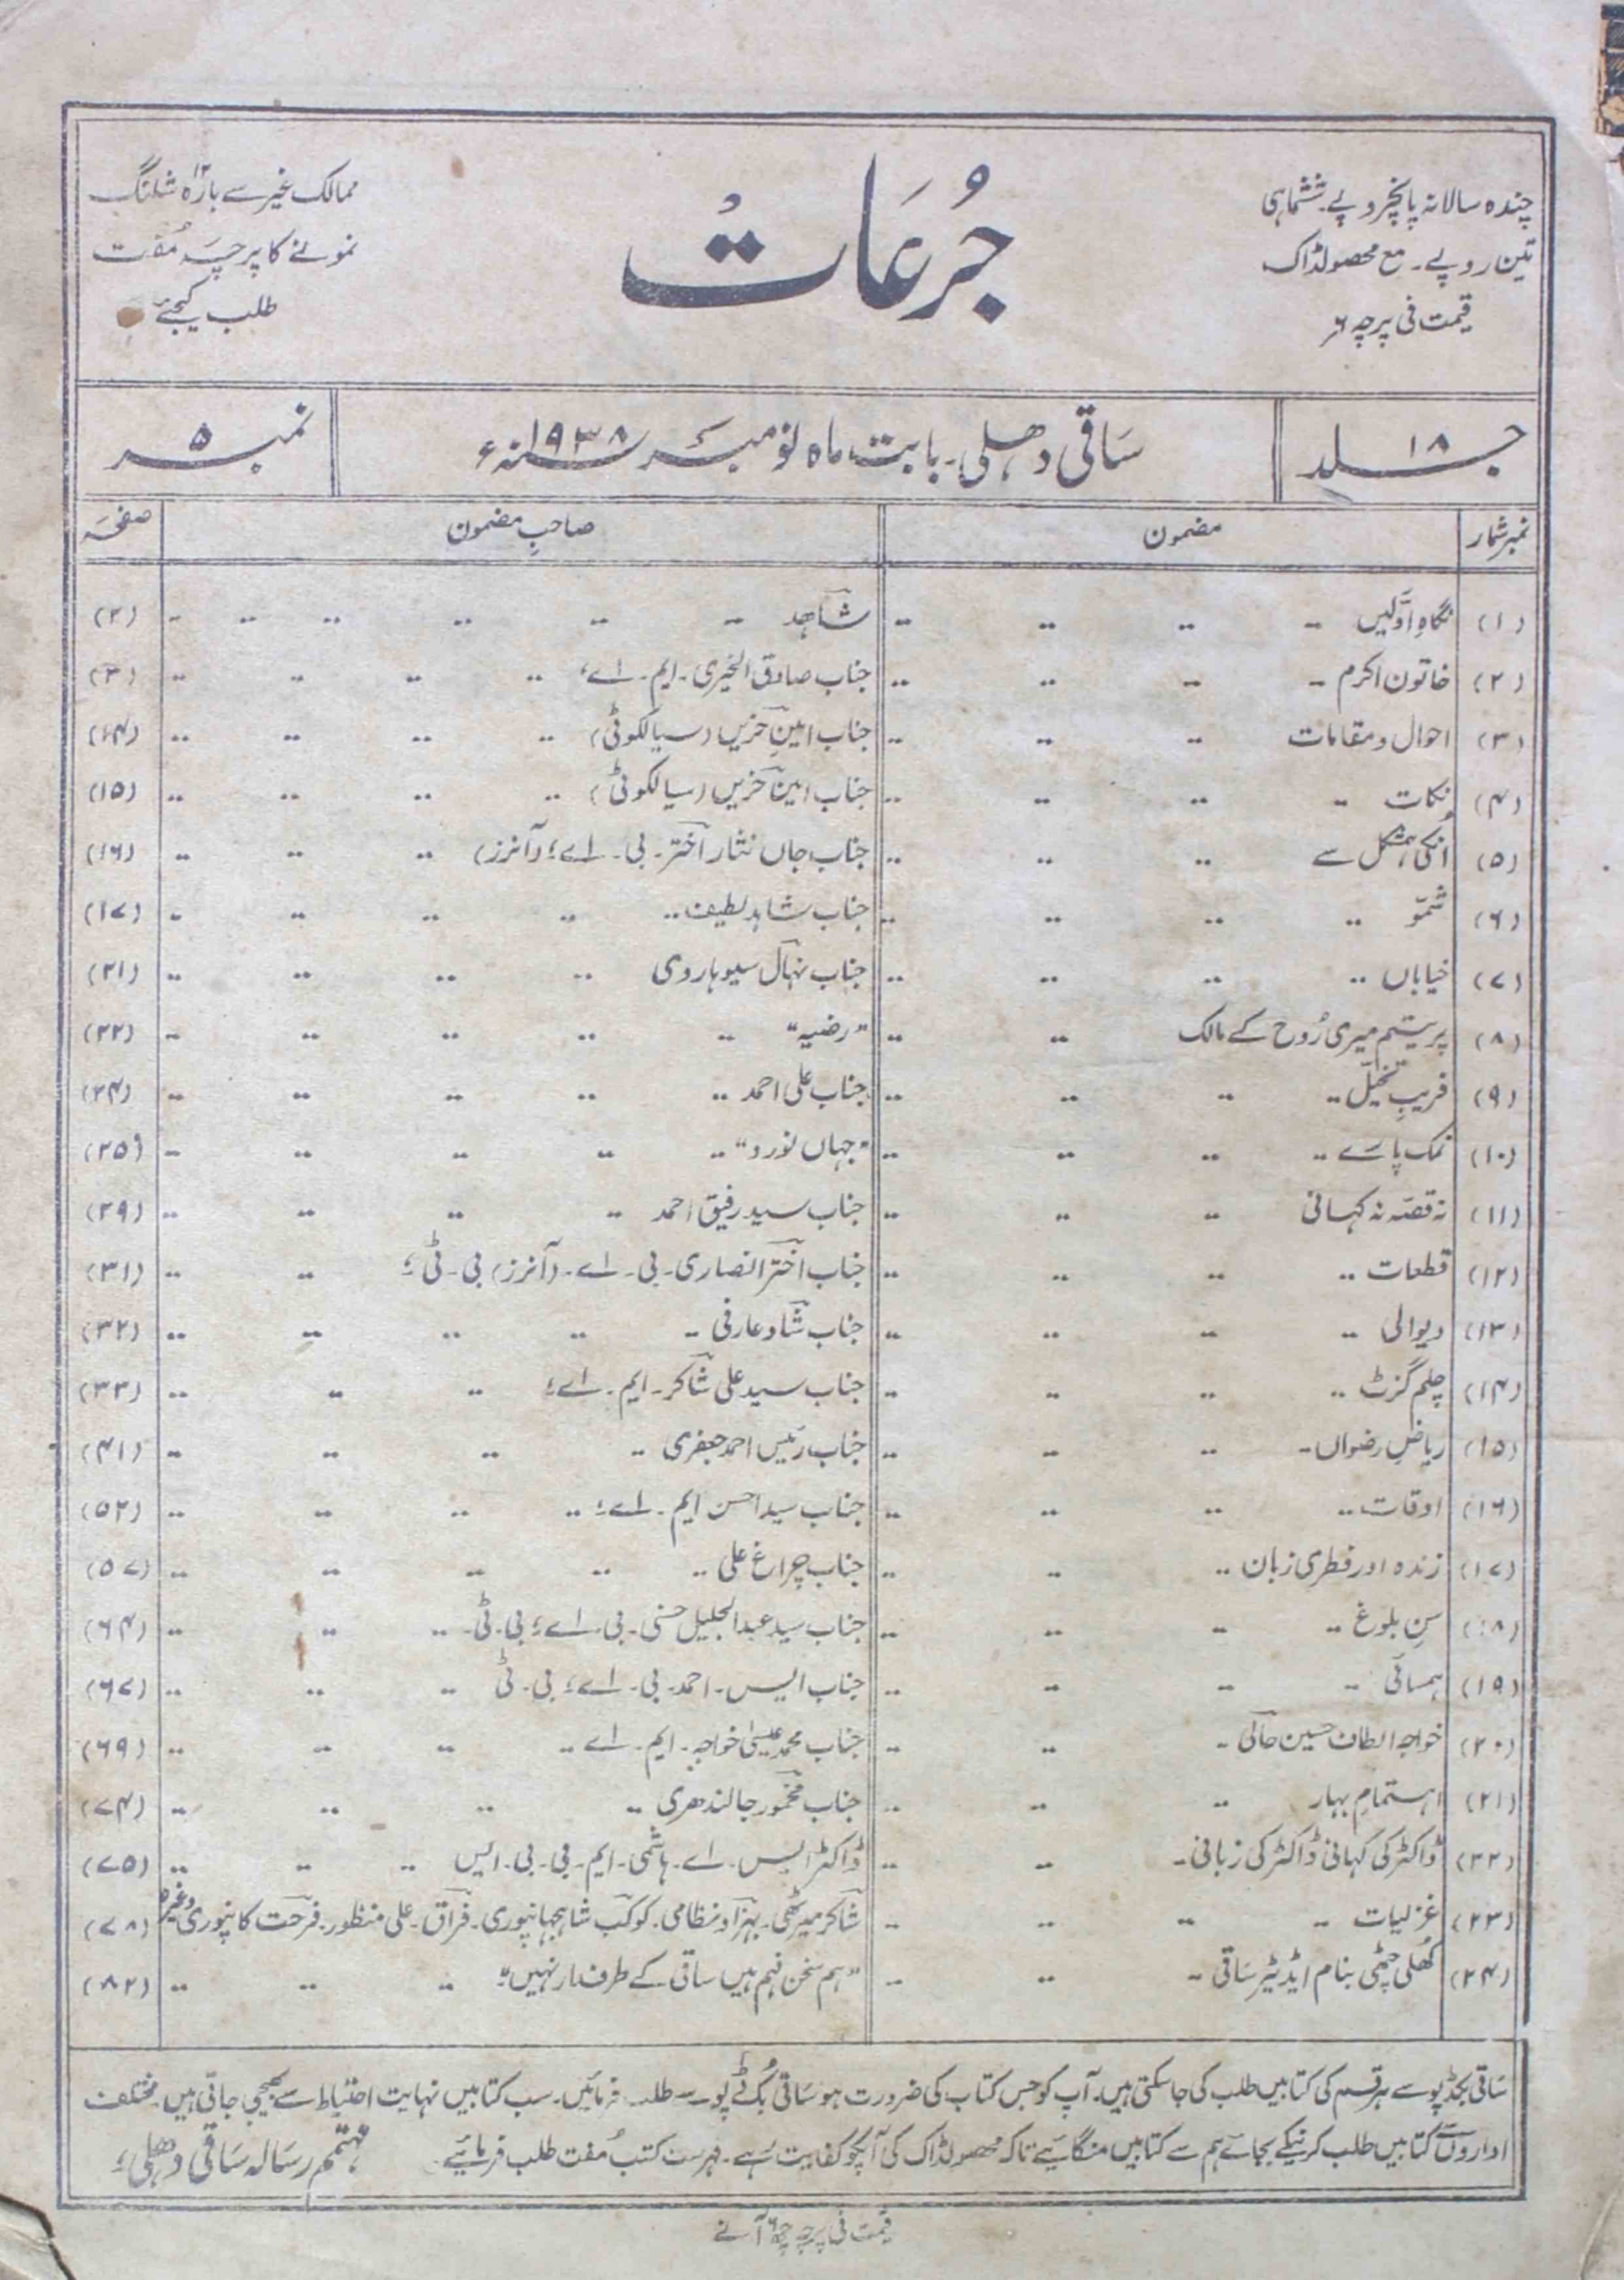 چندہ سالانہ پانچروپے۔ ششماہی
تین روپے۔ مع محصولڈاک
قیمت فی پرچہ ۶ر
جُرعَاتُ
ممالک غیر سے بارہ ۱۲ شلنگ
نمونے کا پرچہ مُفت
طلب کیجئے
جلد ۱۸
سَاقی دھلی۔ بابت ماہ نومبر ۱۹۳۸ء
نمبر ۵
نمبرشمار مضمون صاحبِ مضمون صفحہ
(۱) نگاہِ اوّلیں شاھد (۲)
(۲) خاتون اکرم جناب صادق الخیری۔ ایم۔ اے، (۳)
(۳) احوال و مقامات جناب امین حزیں (سیالکوٹی) (۱۴)
(۴) نکات جناب امین حزیں (سیالکوٹی) (۱۵)
(۵) اُنکی ہمشکل سے جناب جاں نثار اختر۔ بی۔ اے؛ (آنرز) (۱۶)
(۶) شمّو جناب شاہد لطیف (۱۷)
(۷) خیاباں جناب نہال سیوہاروی (۲۱)
(۸) پریتم میری رُوح کے مالک "رضیہ" (۲۲)
(۹) فریبِ تخیّل جناب علی احمد (۲۴)
(۱۰) نمک پارے "جہاں نورد" (۲۵)
(۱۱) نہ قصّہ نہ کہانی جناب سید رفیق احمد (۲۹)
(۱۲) قطعات جناب اختر انصاری۔ بی۔ اے۔ (آنرز) بی۔ ٹی؛ (۳۱)
(۱۳) دیوالی جناب شاد عارفی (۳۲)
(۱۴) چلم گزٹ جناب سید علی شاکر۔ ایم۔ اے؛ (۳۳)
(۱۵) ریاضِ رضواں جناب رئیس احمد جعفری (۴۱)
(۱۶) اوقات جناب سید احسن ایم۔ اے؛ (۵۲)
(۱۷) زندہ اور فطری زبان جناب چراغ علی (۵۷)
(۱۸) سنِ بلوغ جناب سید عبدالجلیل حسنی۔ بی۔ اے؛ بی۔ ٹی۔ (۶۴)
(۱۹) ہمسائی جناب ایس۔ احمد۔ بی۔ اے؛ بی۔ ٹی (۶۷)
(۲۰) خواجہ الطاف حسین حالی جناب محمد عیسیٰ خواجہ۔ ایم۔ اے (۶۹)
(۲۱) اہتمامِ بہار جناب مخمور جالندھری (۷۴)
(۲۲) ڈاکٹر کی کہانی ڈاکٹر کی زبانی ڈاکٹر ایس۔ اے۔ ہاشمی۔ ایم۔ بی۔ بی۔ ایس (۷۵)
(۲۳) غزلیات شاکر میرٹھی۔ بہزاد نظامی۔ کوکب شاہجہانپوری۔ فراق۔ علی منظور۔ فرحت کانپوری وغیرہ (۷۸)
(۲۴) کھُلی چٹھی بنام ایڈیٹر ساقی "ہم سخن فہم ہیں ساقی کے طرفدار نہیں" (۸۲)
سَاقی بکڈپو سے ہر قسم کی کتابیں طلب کی جاسکتی ہیں۔ آپ کو جس کتاب کی ضرورت ہو ساقی بُک ڈپو سے طلب فرمائیں۔ سب کتابیں نہایت احتیاط سے بھیجی جاتی ہیں۔ مختلف
اداروں سے کتابیں طلب کرنیکے بجائے ہم سے کتابیں منگائیے تاکہ محصولڈاک کی آپکو کفایت رہے۔ فہرست کتب مُفت طلب فرمائیے۔ مہتمم رسَالہ سَاقی دھلی؛
قیمت فی پرچہ چھ ۶ آنے